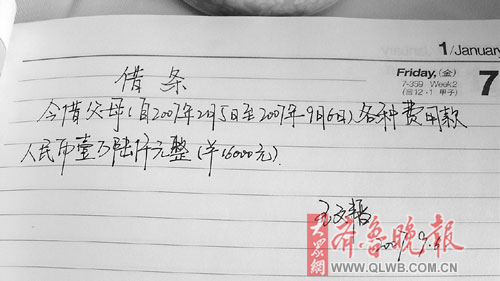 1/January
Friday,(金)
7-359 Week2
(宫12·1 甲子)
7
借条
今借父母(自2007年2月5日至2007年9月6日)各种费用款
人民币壹万陆仟元整(¥16000元).
2007.9.6
大众網
齐鲁晚报
WWW.QLWB.COM.CN